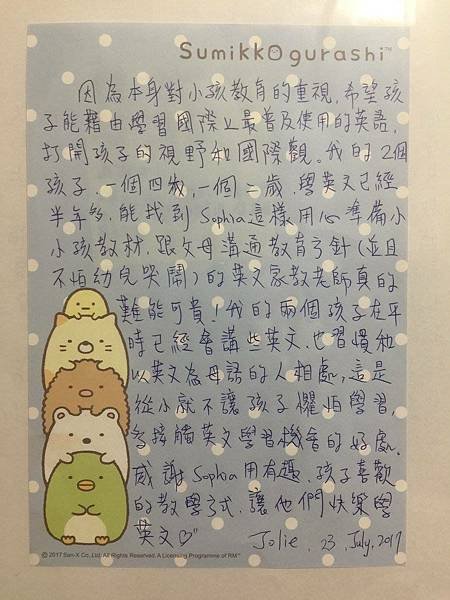 Sumikkogurashi™
因為本身對小孩教育的重視,希望孩
子能藉由學習國際上最普及使用的英語,
打開孩子的視野和國際觀。我的2個
孩子,一個四歲,一個二歲,學英文已經
半年多,能找到Sophia這樣用心準備小
小孩教材,跟父母溝通教育方針(並且
不怕幼兒哭鬧)的英文家教老師真的
難能可貴!我的兩個孩子在平
時已經會講些英文,也習慣和
以英文為母語的人相處,這是
從小就不讓孩子懼怕學習,
多接觸英文學習機會的好處.
感謝Sophia用有趣、孩子喜歡
的教學方式,讓他們快樂學
英文♡"
Jolie, 23, July, 2017
© 2017 San-X Co., Ltd. All Rights Reserved. A Licensing Programme of RM™